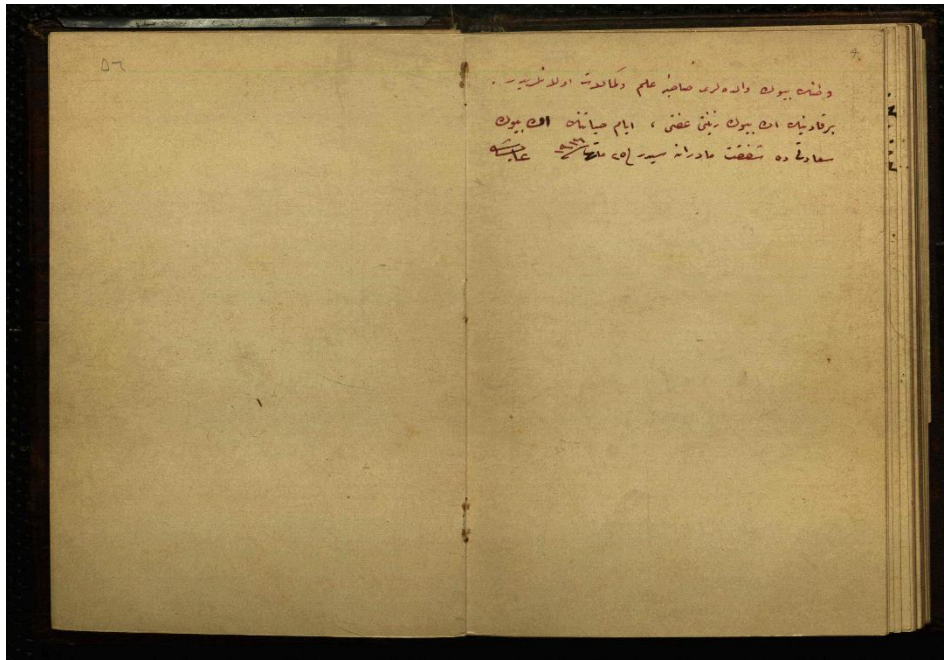 وطنك بيوك والده لرى صاحبۀ علم وكمالات اولانلريدر .
برقادينك اك بيوك زينتى عفتى ، ايام حياتنك اك بيوك
سعادتى ده شفقت مادرانه سيدر ٢٥ عائشه
٥٦